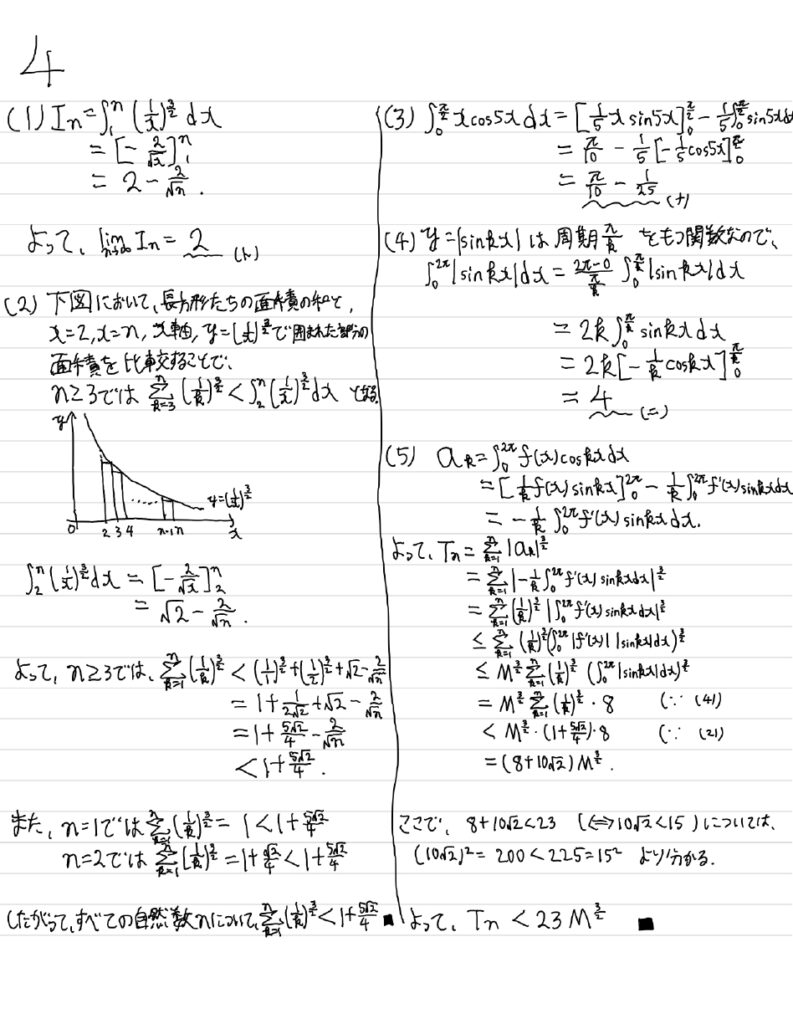 4
(1) I_n = ∫_1^n (1/x)^{3/2} dx
= [-2/√x]_1^n
= 2 - 2/√n .
よって、lim_{n→∞} I_n = 2 (ト)
(2) 下図において、長方形たちの面積の和と、
x=2, x=n, x軸, y=(1/x)^{3/2}で囲まれた部分の
面積を比較することで、
n≥3では Σ_{k=3}^n (1/k)^{3/2} < ∫_2^n (1/x)^{3/2} dx となる
y
y=(1/x)^{3/2}
0 2 3 4 ...... n-1 n x
∫_2^n (1/x)^{3/2} dx = [-2/√x]_2^n
= √2 - 2/√n .
よって、n≥3では、Σ_{k=1}^n (1/k)^{3/2} < (1/1)^{3/2} + (1/2)^{3/2} + √2 - 2/√n
= 1 + 1/(2√2) + √2 - 2/√n
= 1 + 5√2/4 - 2/√n
< 1 + 5√2/4 .
また、n=1では Σ_{k=1}^n (1/k)^{3/2} = 1 < 1 + 5√2/4
n=2では Σ_{k=1}^n (1/k)^{3/2} = 1 + √2/4 < 1 + 5√2/4
したがって、すべての自然数nについて、Σ_{k=1}^n (1/k)^{3/2} < 1 + 5√2/4 ■
(3) ∫_0^{π/2} x cos5x dx = [1/5 x sin5x]_0^{π/2} - 1/5 ∫_0^{π/2} sin5x dx
= π/10 - 1/5 [-1/5 cos5x]_0^{π/2}
= π/10 - 1/25 (ナ)
(4) y=|sinkx| は 周期 π/k をもつ関数なので、
∫_0^{2π} |sinkx| dx = (2π-0)/(π/k) ∫_0^{π/k} |sinkx| dx
= 2k ∫_0^{π/k} sinkx dx
= 2k [-1/k coskx]_0^{π/k}
= 4 (ニ)
(5) a_k = ∫_0^{2π} f(x) coskx dx
= [1/k f(x) sinkx]_0^{2π} - 1/k ∫_0^{2π} f'(x) sinkx dx
= -1/k ∫_0^{2π} f'(x) sinkx dx.
よって、T_n = Σ_{k=1}^n |a_k|^{3/2}
= Σ_{k=1}^n |-1/k ∫_0^{2π} f'(x) sinkx dx|^{3/2}
= Σ_{k=1}^n (1/k)^{3/2} |∫_0^{2π} f'(x) sinkx dx|^{3/2}
≤ Σ_{k=1}^n (1/k)^{3/2} (∫_0^{2π} |f'(x)| |sinkx| dx)^{3/2}
≤ M^{3/2} Σ_{k=1}^n (1/k)^{3/2} (∫_0^{2π} |sinkx| dx)^{3/2}
= M^{3/2} Σ_{k=1}^n (1/k)^{3/2} · 8 (∵ (4))
< M^{3/2} · (1 + 5√2/4) · 8 (∵ (2))
= (8+10√2) M^{3/2} .
ここで、8+10√2<23 (⇔10√2<15)については、
(10√2)^2 = 200 < 225 = 15^2 より分かる.
よって、T_n < 23 M^{3/2} ■